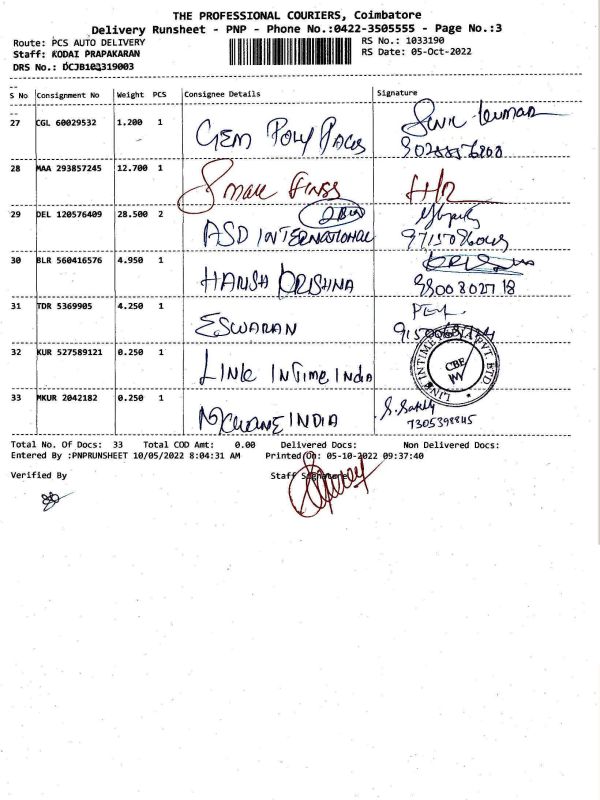 THE PROFESSIONAL COURIERS, Coimbatore
Delivery Runsheet - PNP - Phone No.:0422-3505555 - Page No.:3
Route: PCS AUTO DELIVERY
RS No.: 1033190
Staff: KODAI PRAPAKARAN
RS Date: 05-Oct-2022
DRS No.: DCJB102319003
S No Consignment No Weight PCS Consignee Details Signature
27 CGL 60029532 1.200 1 GEM POLY PACKS
28 MAA 293857245 12.700 1
29 DEL 120576409 28.500 2 ASD INTERNATIONAL
30 BLR 560416576 4.950 1 HARSH KRISHNA
31 TDR 5369905 4.250 1 ESWARAN
32 KUR 527589121 0.250 1 LINK INTIME INDIA
CBE
33 MKUR 2042182 0.250 1 INDIA
7305398845
Total No. Of Docs: 33 Total COD Amt: 0.00 Delivered Docs: Non Delivered Docs:
Entered By :PNPRUNSHEET 10/05/2022 8:04:31 AM Printed On: 05-10-2022 09:37:40
Verified By Staff Signature